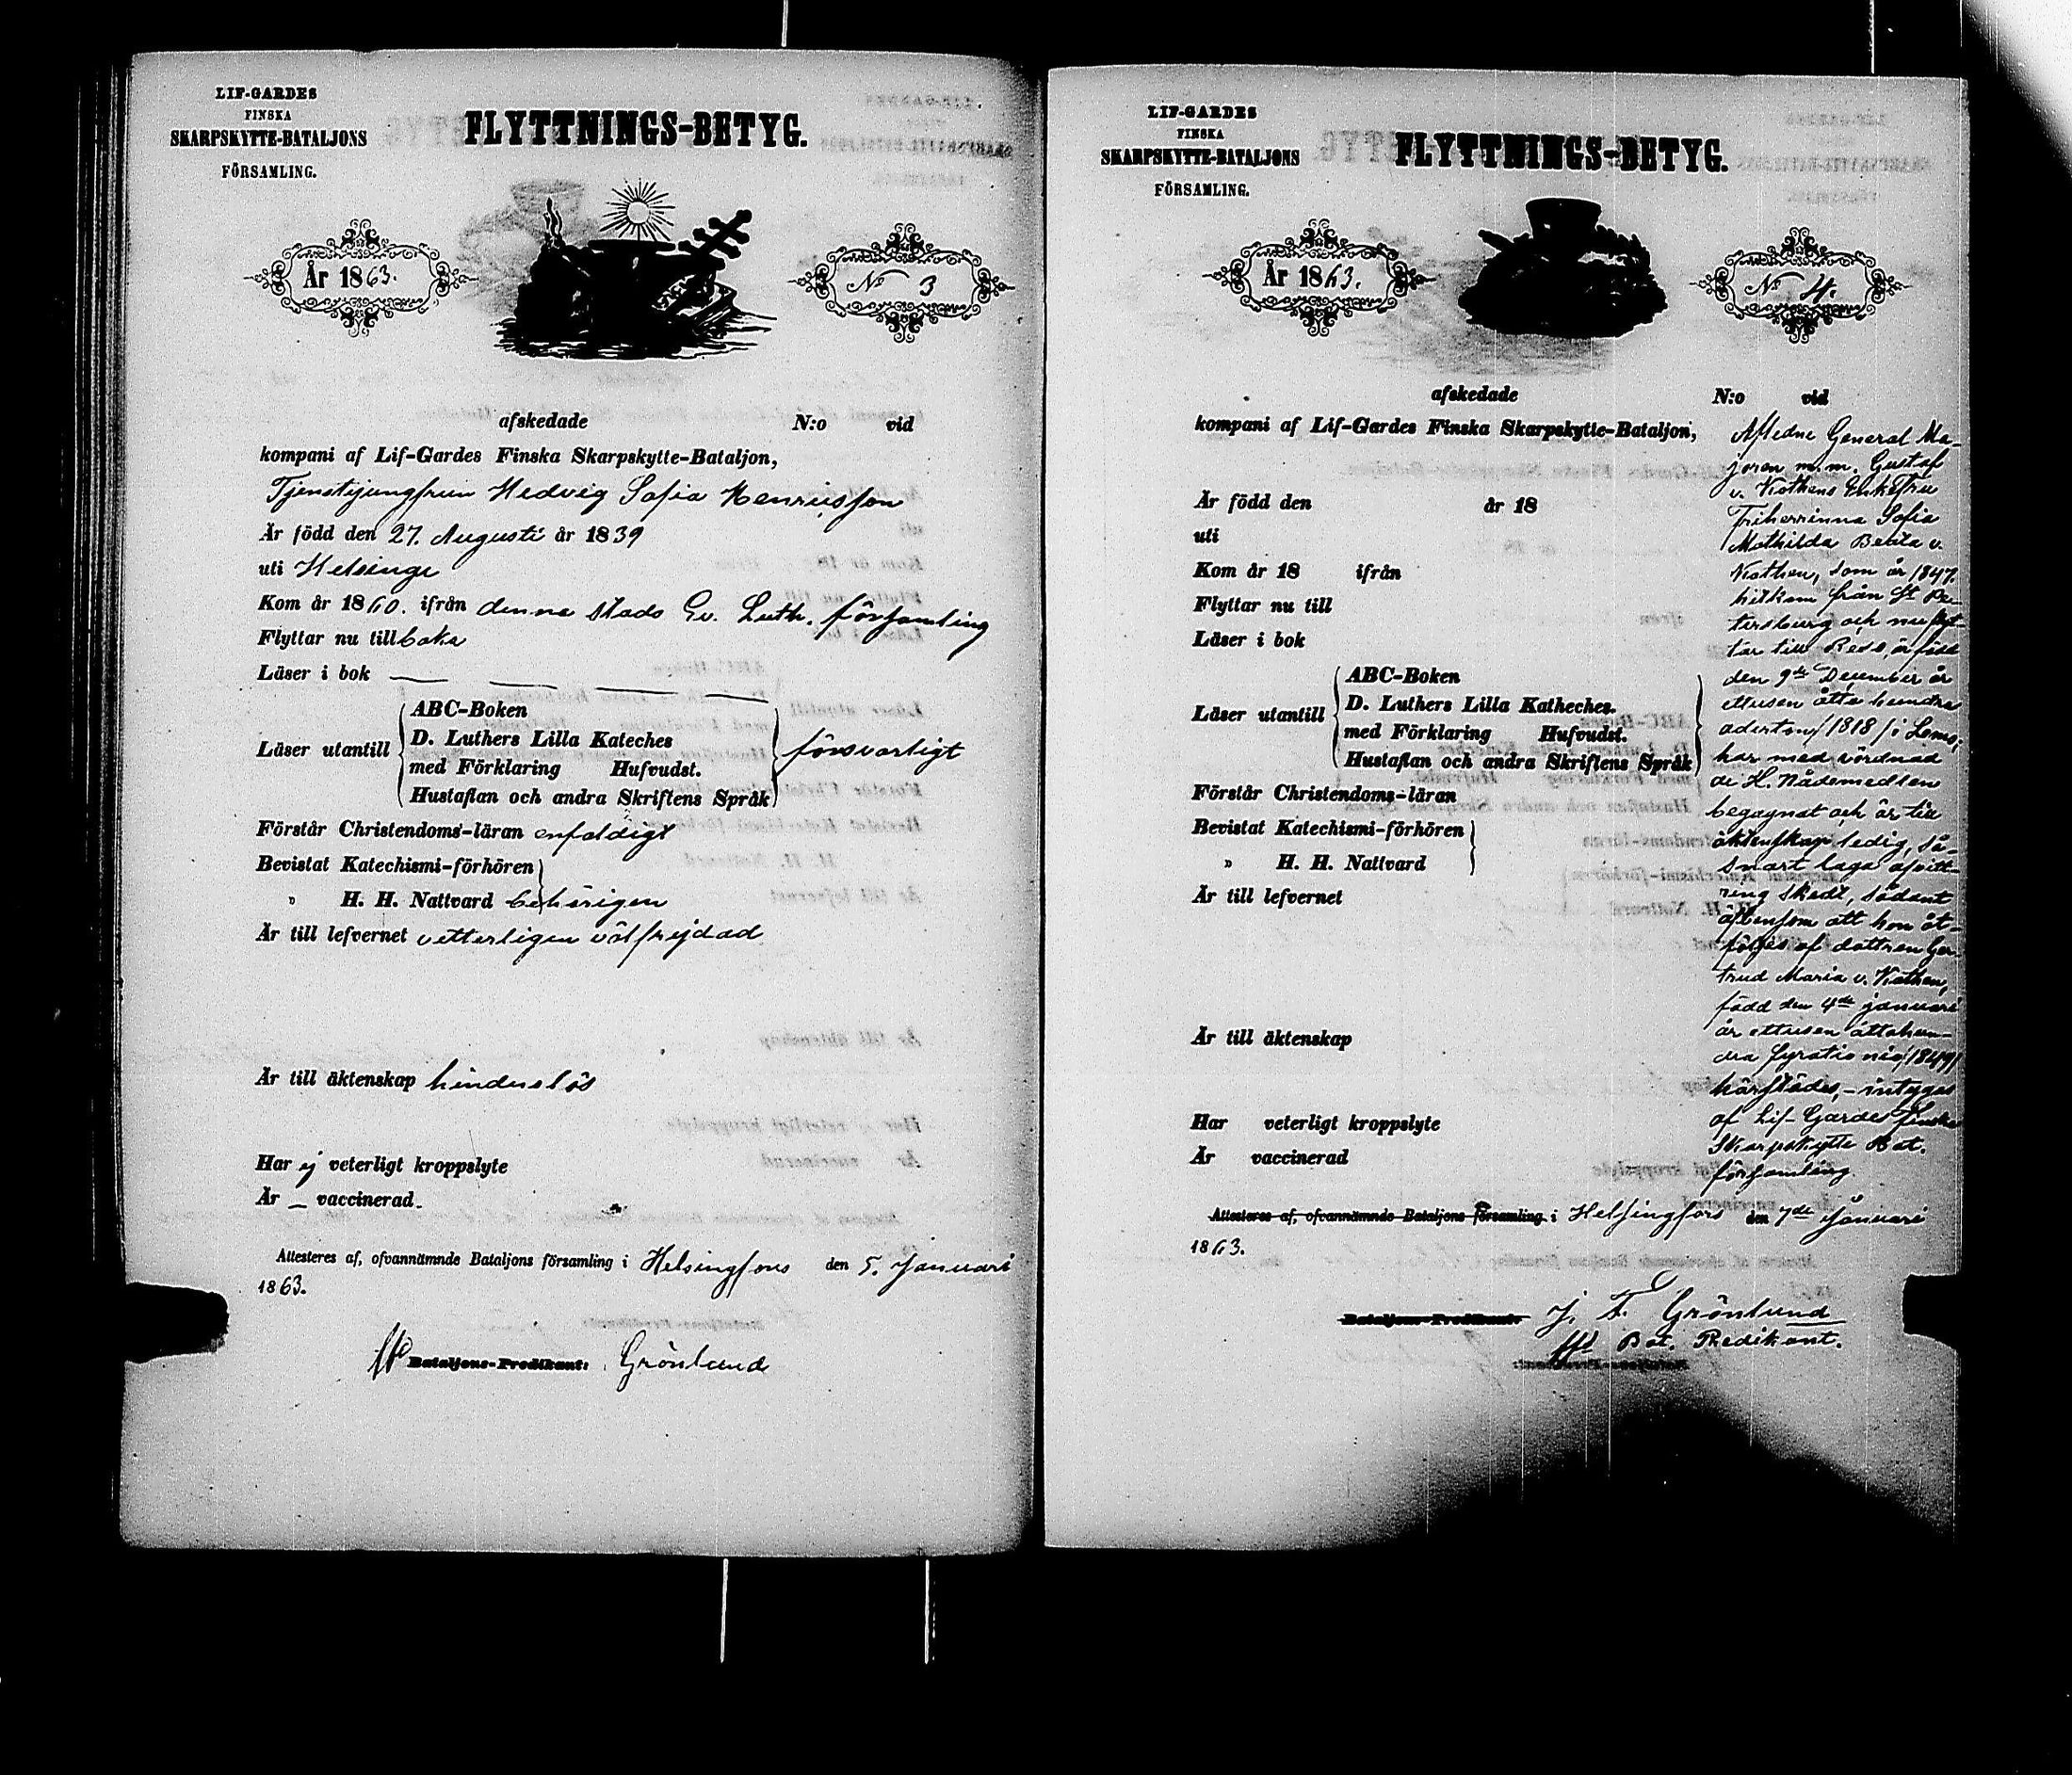 LIF-GARDES
FINSKA
SKARPSKYTTE-BATALJONS
FÖRSAMLING.
FLYTTNINGS-BETYG.
År 1863.
No 3
afskedade N:o vid
kompani af Lif-Gardes Finska Skarpskytte-Bataljon,
Tjenstejungfrun Hedvig Sofia Henriksson
Är född den 27. Augusti år 1839
uti Helsinge
Kom år 1860. ifrån denna stads Ev. Luth. församling
Flyttar nu tillbaka
Läser i bok — — — —
Läser utantill
ABC-Boken
D. Luthers Lilla Kateches
med Förklaring Hufvudst.
Hustaflan och andra Skriftens Språk
försvarligt
Förstår Christendoms-läran enfaldigt
Bevistat Katechismi-förhören
" H. H. Nattvard behörigen
Är till lefvernet vetterligen välfrejdad
Är till äktenskap hinderslös
Har ej veterligt kroppslyte
Är — vaccinerad.
Attesteres af, ofvannämnde Bataljons församling i Helsingfors den 5. Januari
1863.
Bataljons-Predikant: Grönlund
LIF-GARDES
FINSKA
SKARPSKYTTE-BATALJONS
FÖRSAMLING.
FLYTTNINGS-BETYG.
År 1863.
No 4.
afskedade N:o vid
kompani af Lif-Gardes Finska Skarpskytte-Bataljon,
Är född den år 18
uti
Kom år 18 ifrån
Flyttar nu till
Läser i bok
Läser utantill
ABC-Boken
D. Luthers Lilla Katheches.
med Förklaring Hufvudst.
Hustaflan och andra Skriftens Språk
Förstår Christendoms-läran
Bevistat Katechismi-förhören
" H. H. Nattvard
Är till lefvernet
Är till äktenskap
Har veterligt kroppslyte
Är vaccinerad
Aflidne General Ma-
joren m.m. Gustaf
v. Kothens Enkefru
Friherrinna Sofia
Mathilda Beata v.
Kothen, som år 1847
hitkom från St Pe-
tersburg och nu flyt-
tar till Reso, är född
den 9de December år
ettusen åtta hundra
aderton /1818/ i Lemo;
har med vördnad
de H. Nådemedlen
begagnat och är till
äktenskap ledig, så-
snart laga afvitt-
ring skedt, sådant
äfvensom att hon åt-
följes af dottren Ger-
trud Maria v. Kothen,
född den 4de januari
år ettusen åttahun-
dra fyratio nio /1849/
härstädes, - intygas
af Lif-Gardes Finska
Skarpskytte Bat.
församling.
Attesteres af, ofvannämnde Bataljons församling. i Helsingfors den 7de Januari
1863.
Bataljons-Predikant: J. F. Grönlund
Bat. Predikant.